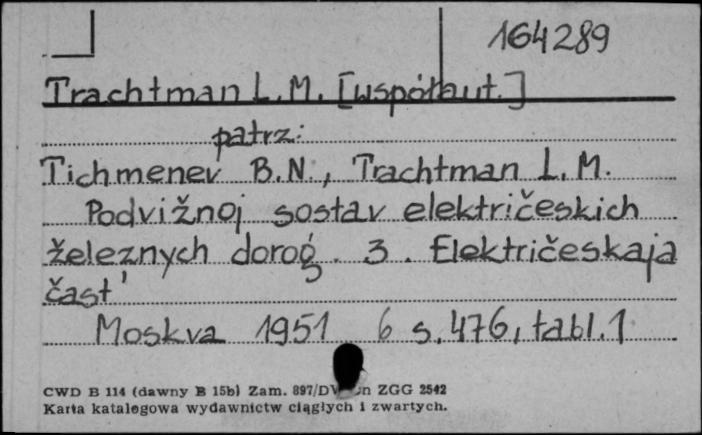 164289
Trachtman L.M. [współaut.]
patrz:
Tichmenev B.N., Trachtman L.M.
Podvižnoj sostav električeskich
železnych dorog. 3. Električeskaja
čast'
Moskva 1951 6 s. 476, tabl. 1
CWD B 114 (dawny B 15b) Zam. 897/DW ZGG 2542
Karta katalogowa wydawnictw ciągłych i zwartych.